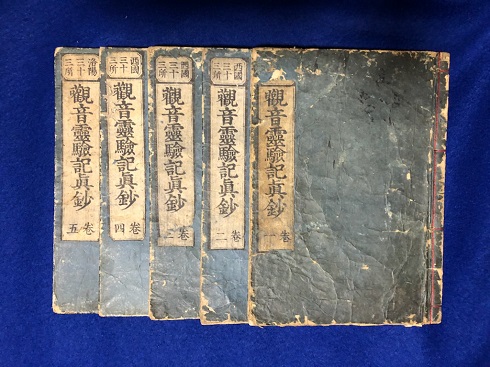 觀音靈驗記眞鈔
卷一
西國
三十
三所
觀音靈驗記眞鈔
卷二
西國
三十
三所
觀音靈驗記眞鈔
卷三
西國
三十
三所
觀音靈驗記眞鈔
卷四
洛陽
三十
三所
觀音靈驗記眞鈔
卷五